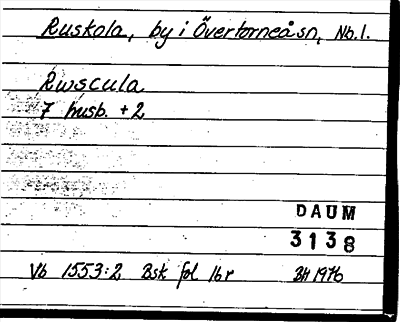 Ruskola, by i Övertorneå sn, Nb.l.
Rwscula
7 husb. + 2
DAUM
3138
Vb 1553:2 Bsk fol 16r BH 1976